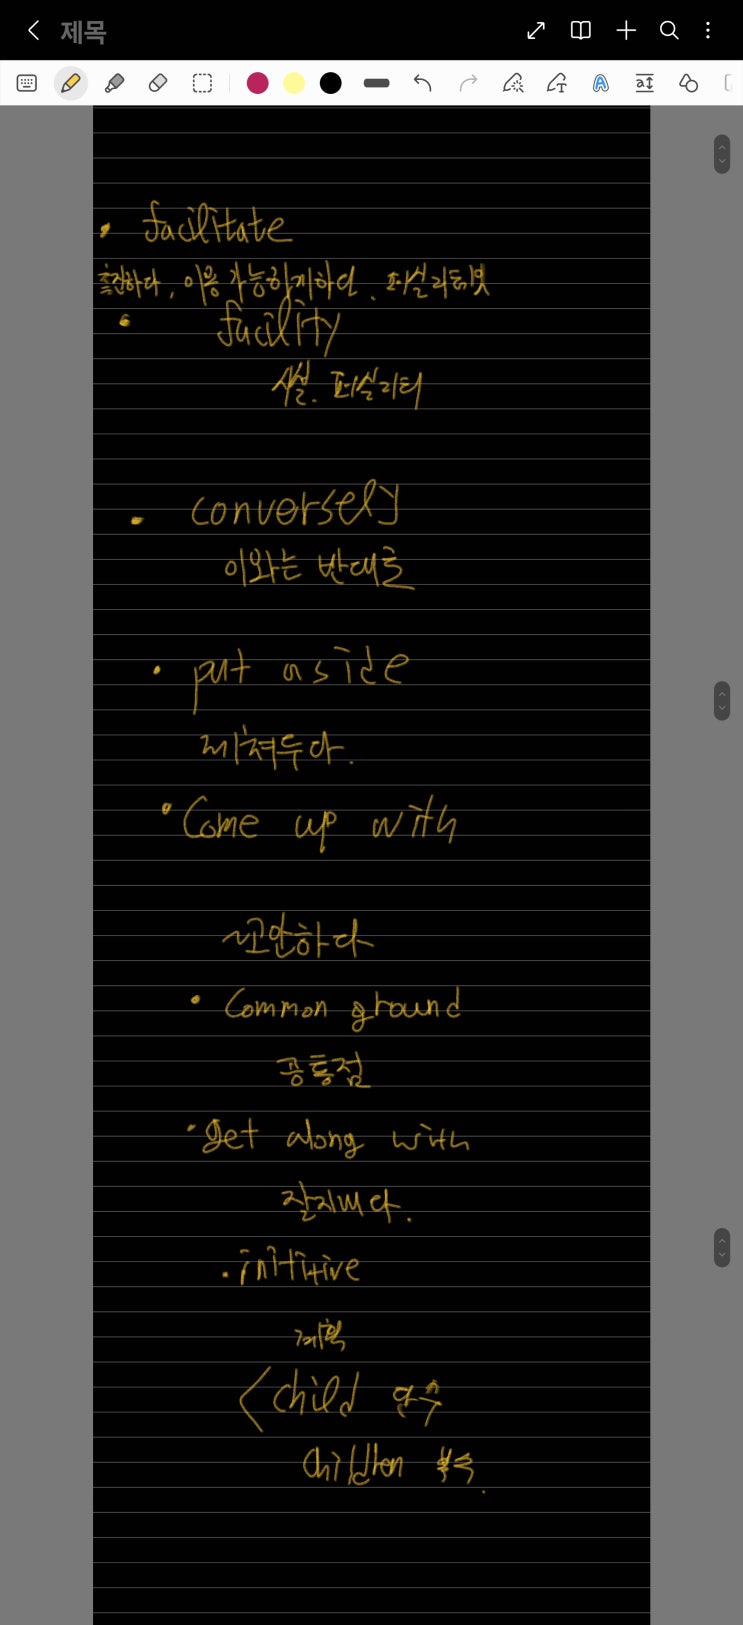 제목
• facilitate
촉진하다, 이용 가능하게하다. 퍼실리테잇
• facility
시설. 퍼실리티
• conversely
이와는 반대로
• put aside
제쳐두다.
• Come up with
고안하다
• Common ground
공통점
• get along with
잘지내다.
• inititive
계획
< child 단수
children 복수.